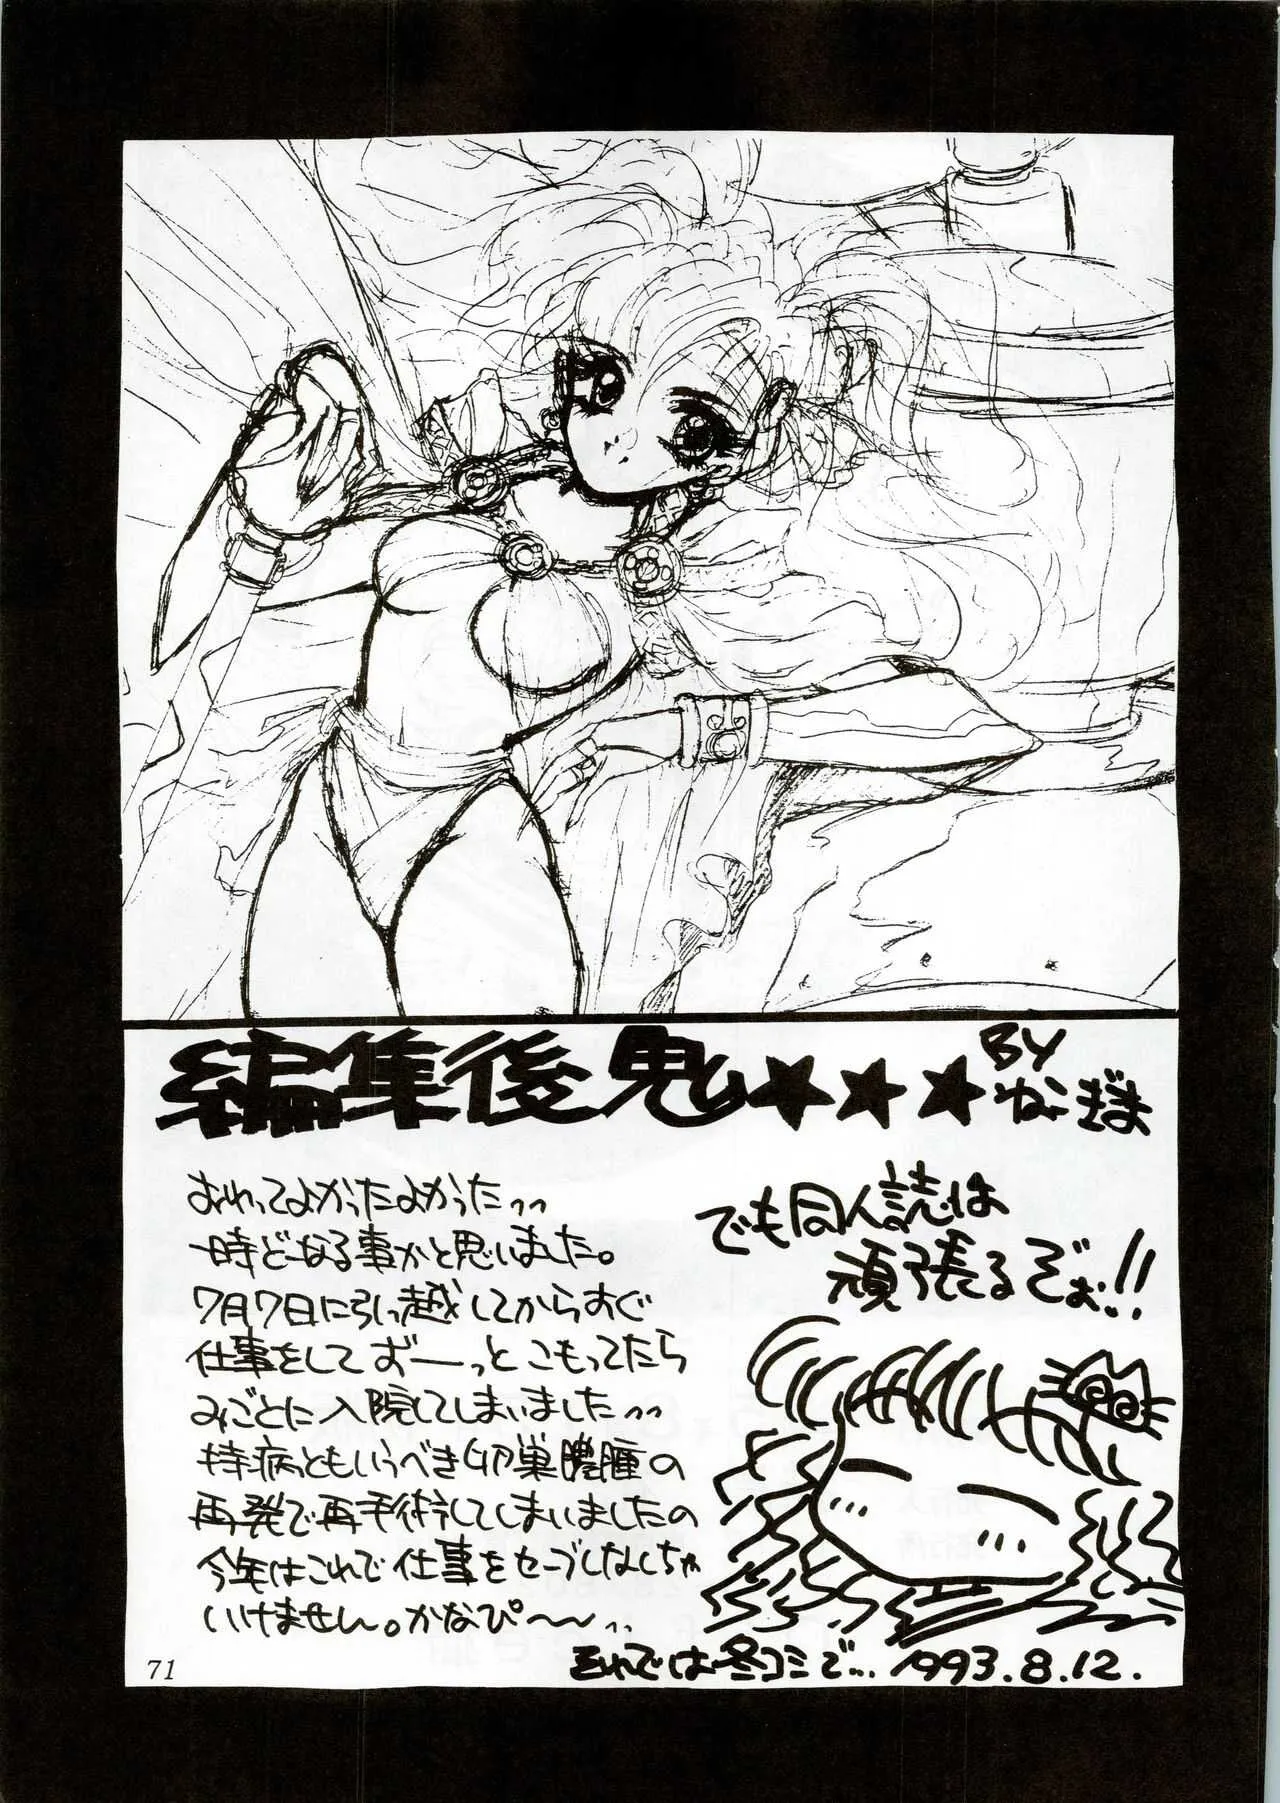 編集後鬼★★★
BY
ねーぎま
おわってよかったよかった、、
一時どーなる事かと思いました。
7月7日に引っ越ししてからすぐ
仕事をしてずーーっとこもってたら
みごとに入院してしまいました、、
持病っともいうべき卵巣膿腫の
再発で再手術してしまいましたの
今年はこれで仕事をセーブしなくちゃ
いけません。かなぴ〜〜、、
でも同人誌は
頑張るぞぉ!!
それでは冬コミで... 1993.8.12.
71